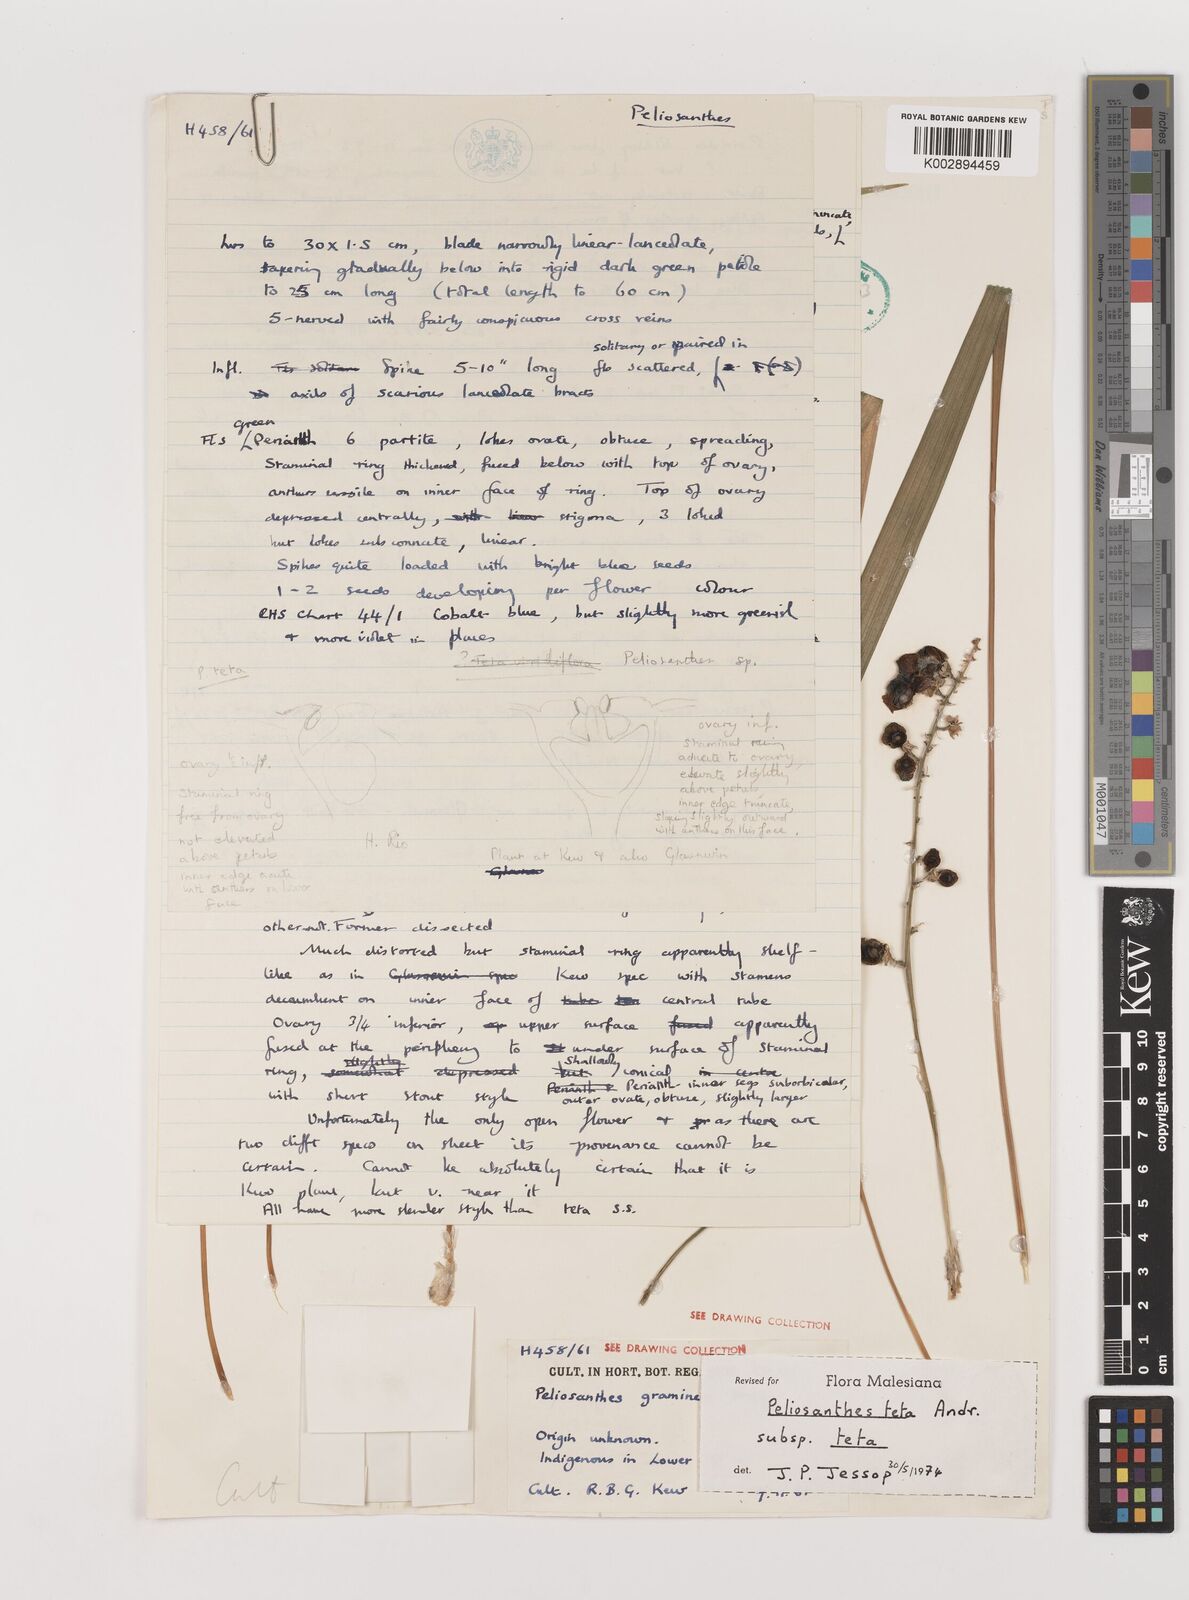 H458/61
Peliosanthes
ROYAL BOTANIC GARDENS KEW
K002894459
lvs to 30 x 1.5 cm, blade narrowly linear-lanceolate,
tapering gradually below into rigid dark green petiole
to 25 cm long (total length to 60 cm)
5-nerved with fairly conspicuous cross veins
solitary or paired in
Infl. Spike 5-10" long fls scattered,
axils of scarious lanceolate bracts
green
Fls Perianth 6 partite, lobes ovate, obtuse, spreading,
Staminal ring thickened, fused below with top of ovary,
anthers sessile on inner face of ring. Top of ovary
depressed centrally, stigma, 3 lobed
but lobes subconnate, linear.
Spikes quite loaded with bright blue seeds
1-2 seeds developing per flower colour
RHS Chart 44/1 Cobalt blue, but slightly more greenish
+ more violet in places
? Teta viridiflora Peliosanthes sp.
P. teta
ovary ½ inf.
Staminal ring
free from ovary
not elevated
above petals
inner edge ovate
with anthers on lower
face
H. Rio
ovary inf.
staminal ring
adnate to ovary,
elevate slightly
above petals
inner edge truncate,
sloping slightly outward
with anthers on this face.
Plant at Kew & also Glasnevin
other not. Former dissected
Much distorted but staminal ring apparently shelf-
like as in Glasnevin spec Kew spec with stamens
decumbent on inner face of central tube
Ovary 3/4 inferior, upper surface fused apparently
fused at the periphery to under surface of staminal
ring, slightly somewhat depressed but shallowly conical in centre
with short stout style Perianth inner segs suborbicular,
outer ovate, obtuse, slightly larger
Unfortunately the only open flower & as there are
two difft specs on sheet its provenance cannot be
certain. Cannot be absolutely certain that it is
Kew plant, but v. near it
All have more slender style than teta s.s.
SEE DRAWING COLLECTION
H458/61 SEE DRAWING COLLECTION
CULT. IN HORT. BOT. REG.
Peliosanthes gramine
Origin unknown.
Indigenous in Lower
Cult. R.B.G. Kew
Revised for Flora Malesiana
Peliosanthes teta Andr.
subsp. teta
det. J. P. Jessop 30/5/1974
Cult
inches
centimeters
Density
Don Williams
M001047
Royal Botanic Gardens
Kew
0 1 2 3 4 5 6 7 8 9 10
cm
copyright reserved